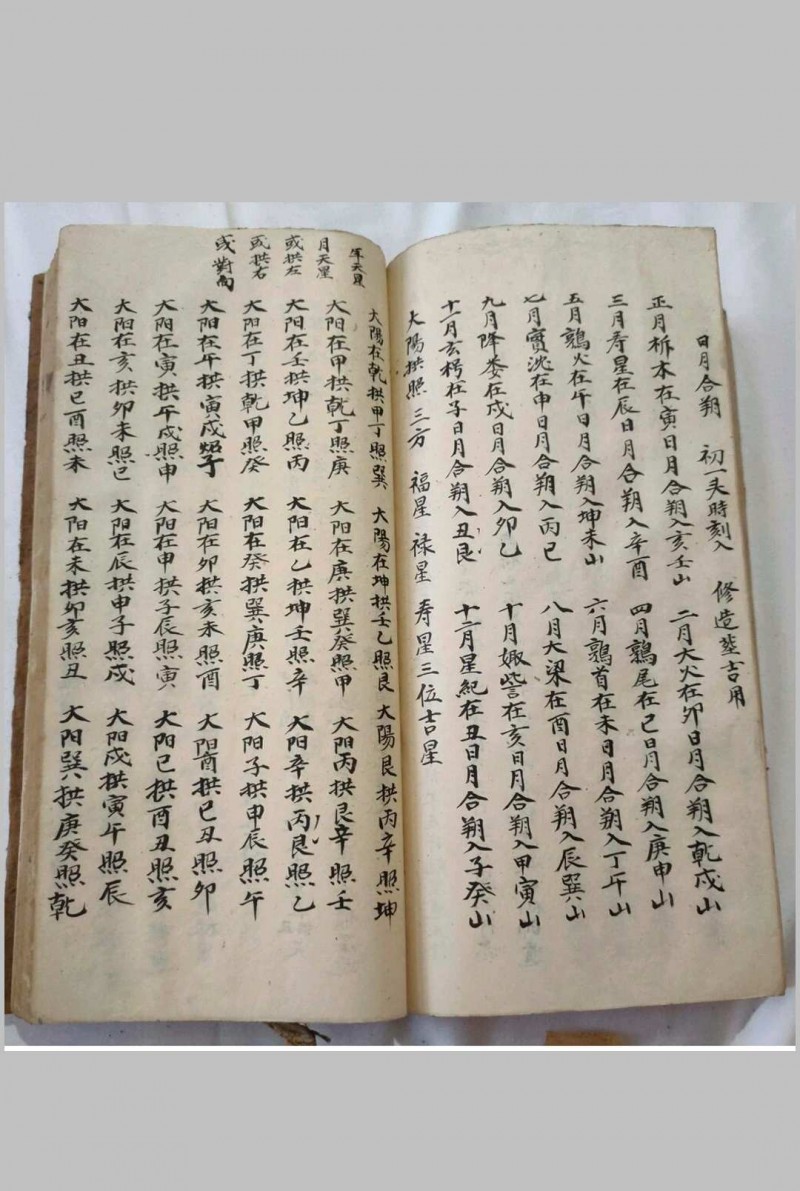 日月合朔 初一头時刻入 修造塟吉用
正月析木在寅日月合朔入亥壬山 二月大火在卯日月合朔入乾戌山
三月寿星在辰日月合朔入辛酉 四月鶉尾在巳日月合朔入庚申山
五月鶉火在午日月合朔入坤未山 六月鶉首在未日月合朔入丁午山
七月實沈在申日月合朔入丙巳 八月大梁在酉日月合朔入辰巽山
九月降娄在戌日月合朔入卯乙 十月娵訾在亥日月合朔入甲寅山
十一月玄枵在子日月合朔入丑艮 十二月星紀在丑日月合朔入子癸山
大陽拱照三方 福星 禄星 寿星三位吉星
大陽在乾拱甲丁照巽 大陽在坤拱壬乙照艮 大陽艮拱丙辛照坤
月天星
大阳在甲拱乾丁照庚 大阳在庚拱巽癸照甲 大阳丙拱艮辛照壬
或拱左
大阳在壬拱坤乙照丙 大阳在乙拱坤壬照辛 大阳辛拱丙艮照乙
或拱右
大阳在丁拱乾甲照癸 大阳在癸拱巽庚照丁 大阳子拱申辰照午
或對向
大阳在午拱寅戌炤子 大阳在卯拱亥未照酉 大阳酉拱巳丑照卯
大阳在寅拱午戌照申 大阳在申拱子辰照寅 大阳巳拱酉丑照亥
大阳在亥拱卯未照巳 大阳在辰拱申子照戌 大阳戌拱寅午照辰
大阳在丑拱巳酉照未 大阳在未拱卯亥照丑 大阳巽拱庚癸照乾